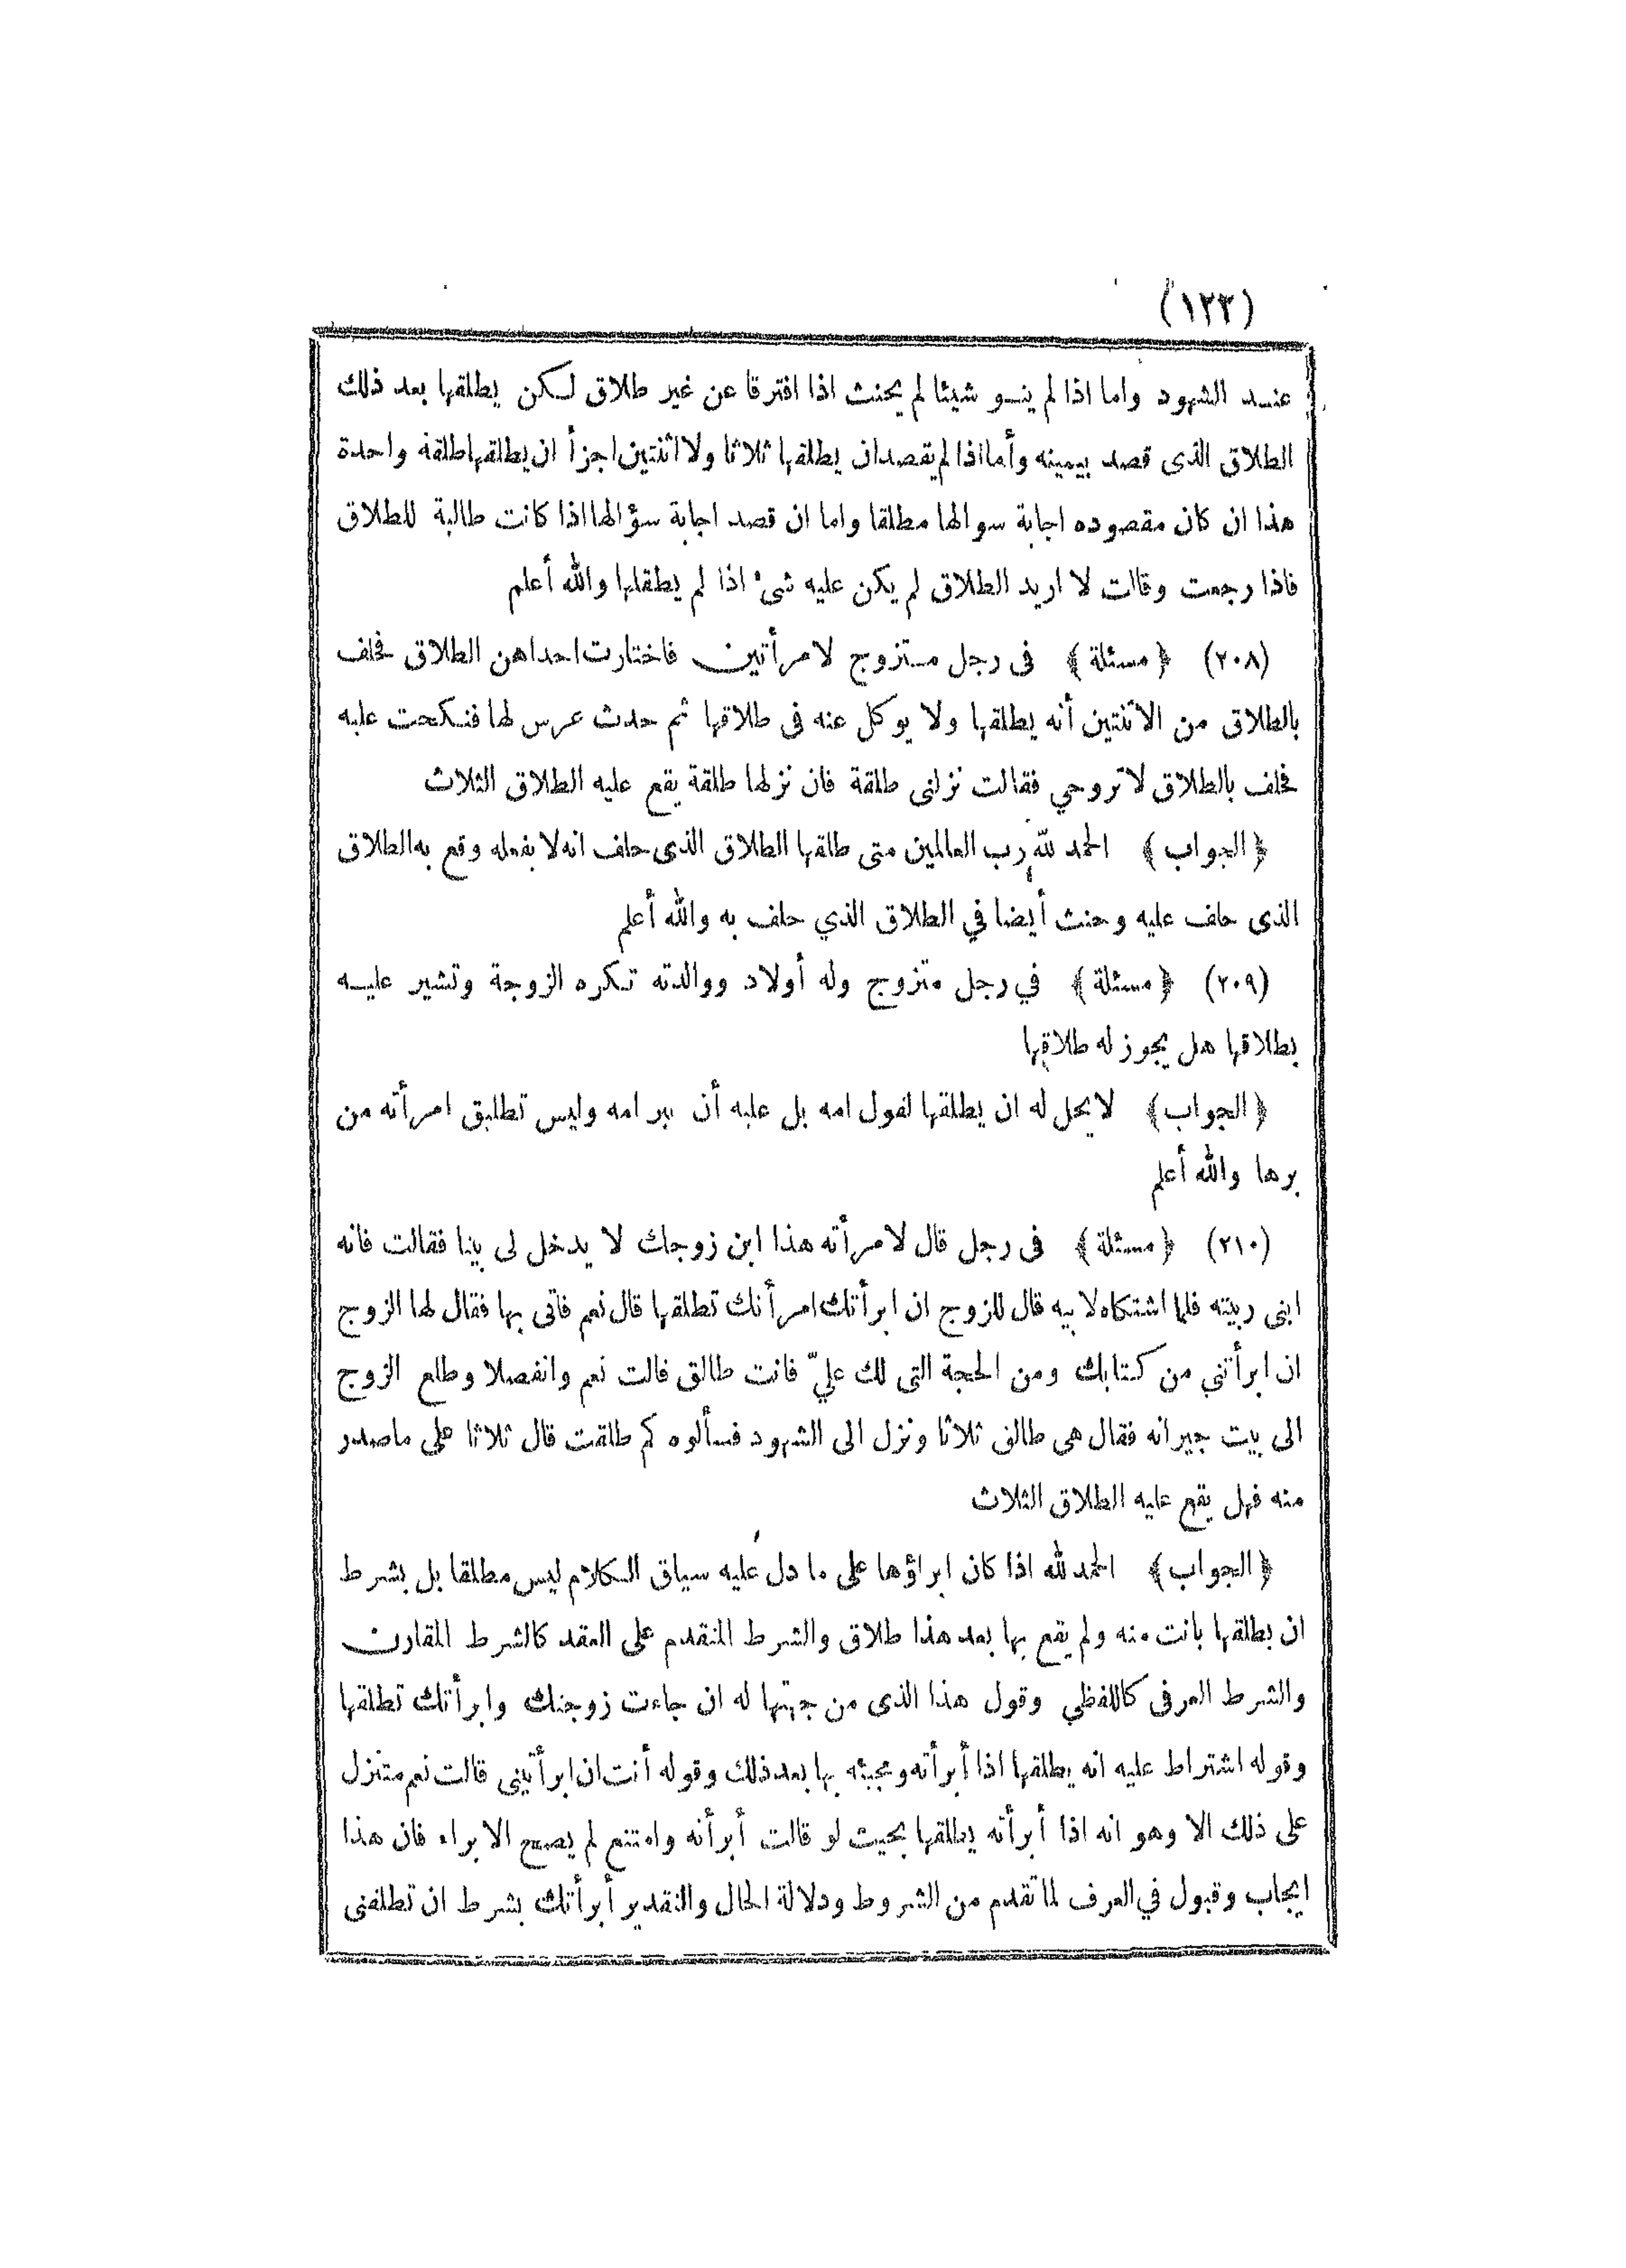 (١٢٣)
عند الشهود واما اذا لم ينو شيئا لم يحنث اذا افترقا عن غير طلاق لكن يطلقها بعد ذلك
الطلاق الذى قصد بيمينه وأما اذا لم يقصد ان يطلقها ثلاثا ولا اثنتين اجزأ ان يطلقها طلقة واحدة
هذا ان كان مقصوده اجابة سوالها مطلقا واما ان قصد اجابة سؤالها اذا كانت طالبة للطلاق
فاذا رجعت وقالت لا اريد الطلاق لم يكن عليه شىء اذا لم يطلقها والله أعلم
(٢٠٨) ﴿مسئلة﴾ فى رجل متزوج لامرأتين فاختارت احداهن الطلاق فحلف
بالطلاق من الاثنتين أنه يطلقها ولا يوكل عنه فى طلاقها ثم حدث عرس لها فنكحت عليه
فحلف بالطلاق لاتروحي فقالت نزلنى طلقة فان نزلها طلقة يقع عليه الطلاق الثلاث
﴿الجواب﴾ الحمد لله رب العالمين متى طلقها الطلاق الذى حلف انه لا يفعله وقع به الطلاق
الذى حلف عليه وحنث أيضا في الطلاق الذي حلف به والله أعلم
(٢٠٩) ﴿مسئلة﴾ في رجل متزوج وله أولاد ووالدته تكره الزوجة وتشير عليه
بطلاقها هل يجوز له طلاقها
﴿الجواب﴾ لا يحل له ان يطلقها لقول امه بل عليه أن يبر امه وليس تطليق امرأته من
برها والله أعلم
(٢١٠) ﴿مسئلة﴾ فى رجل قال لامرأته هذا ابن زوجك لا يدخل لى بيتا فقالت فانه
ابنى ربيته فلما اشتكاه لابيه قال للزوج ان ابرأتك امرأتك تطلقها قال نعم فاتى بها فقال لها الزوج
ان ابرأتني من كتابك ومن الحجة التى لك عليّ فانت طالق قالت نعم وانفصلا وطلع الزوج
الى بيت جيرانه فقال هى طالق ثلاثا ونزل الى الشهود فسألوه كم طلقت قال ثلاثا على ماصدر
منه فهل يقع عليه الطلاق الثلاث
﴿الجواب﴾ الحمد لله اذا كان ابراؤها على ما دل عليه سياق الكلام ليس مطلقا بل بشرط
ان يطلقها بانت منه ولم يقع بها بعد هذا طلاق والشرط المتقدم على العقد كالشرط المقارن
والشرط العرفى كاللفظي وقول هذا الذى من جهتها له ان جاءت زوجتك وابرأتك تطلقها
وقوله اشتراط عليه انه يطلقها اذا أبرأته ومجيئه بها بعد ذلك وقوله أنت ان ابرأتينى قالت نعم متنزل
على ذلك الا وهو انه اذا أبرأته يطلقها بحيث لو قالت أبرأته وامتنع لم يصح الابراء فان هذا
ايجاب وقبول في العرف لما تقدم من الشروط ودلالة الحال والتقدير أبرأتك بشرط ان تطلقنى